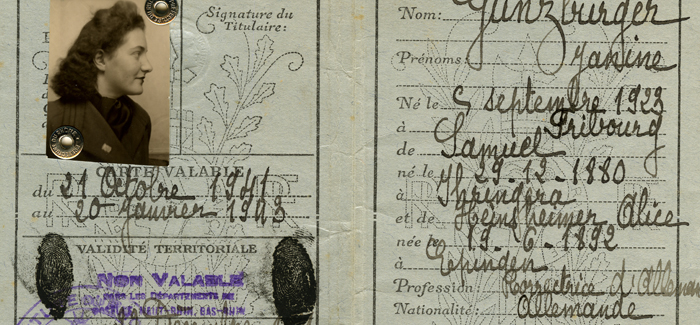 Signature du
Titulaire:
CARTE VALABLE
du 21 Octobre 1941
au 20 janvier 1943
VALIDITÉ TERRITORIALE
NON VALABLE
DANS LES DÉPARTEMENTS DE
HAUT-RHIN, BAS-RHIN
Nom: Gunzburger
Prénoms: Janine
Né le 5 septembre 1923
à Fribourg
de Samuel
né le 29-12-1880
à
et de Heinsheimer Alice
née le 19-6-1892
à
Profession: Correctrice d'Alleman
Nationalité: Allemande